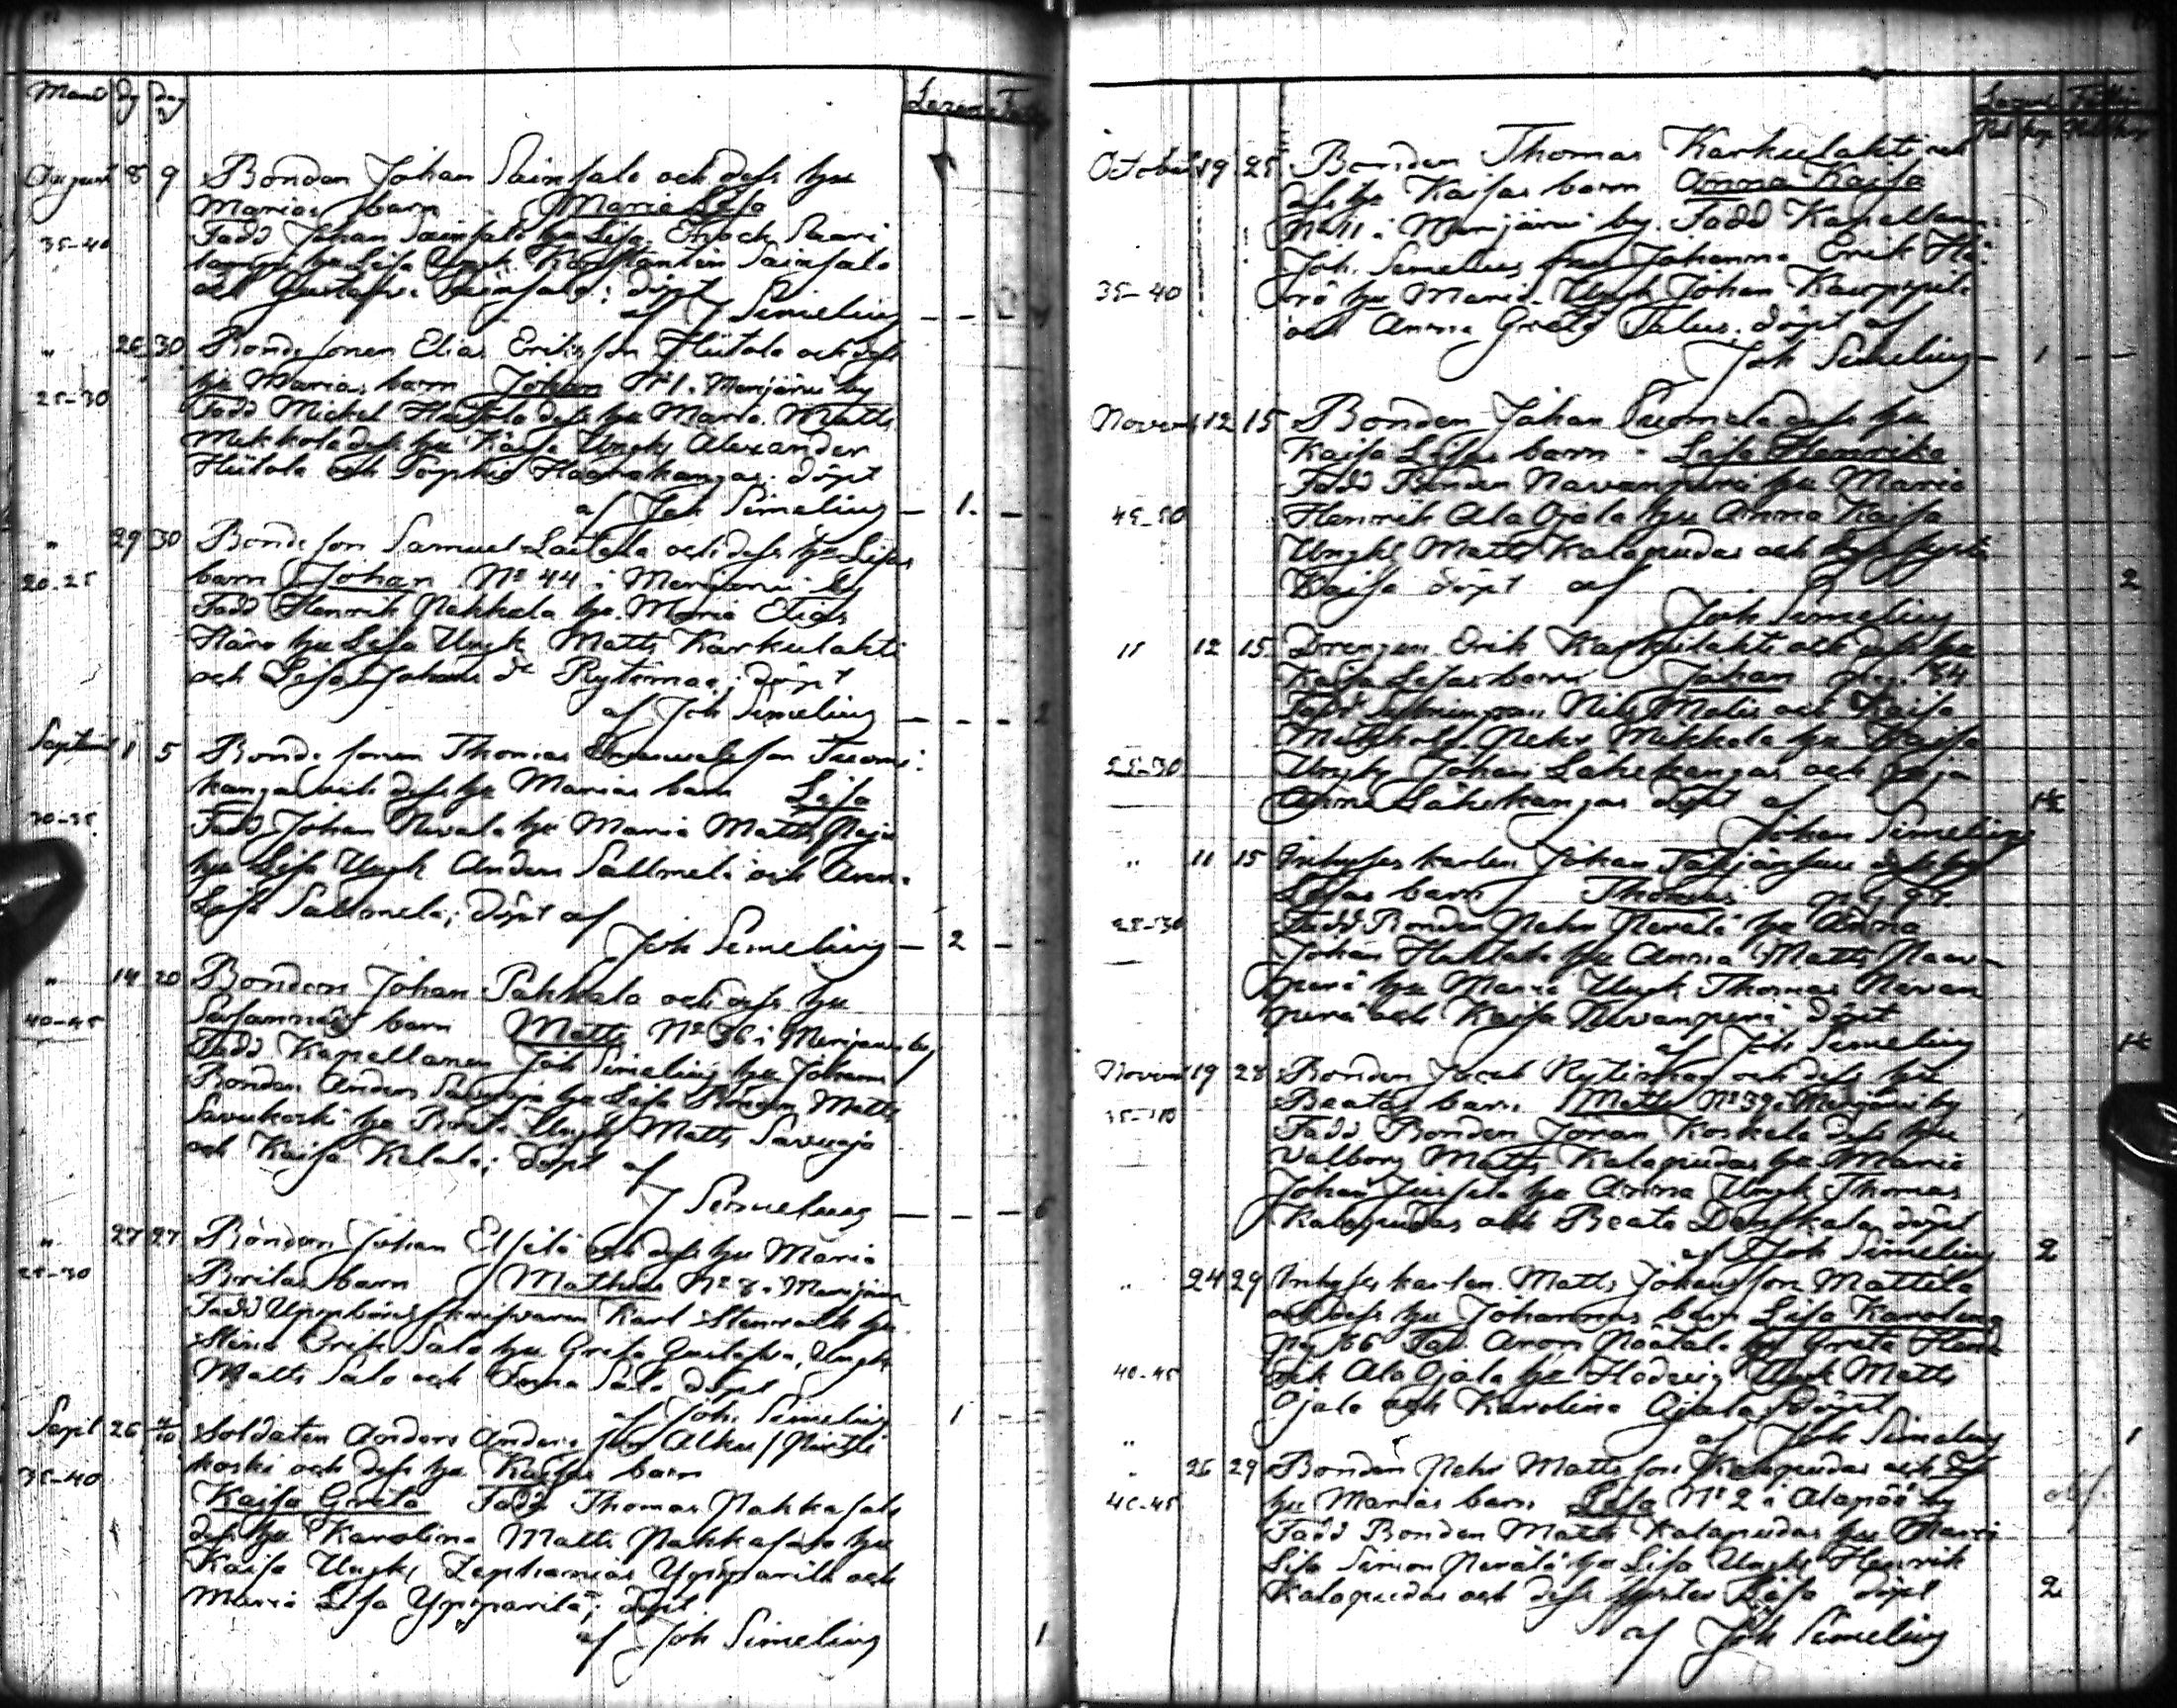 Manad dag dag
Lazaret Fattig
August 8 9 Bonden Johan Sainsalo och dess hu
Marias barn Maria Lisa
35-40 Fadd Johan Sainsalo hu Lisa Enock Saari
hu Lisa Ungk Konstantin Sainsalo
och Gustava Sainsalo; döpt
af J Simelius
" 26 30 Bondesonen Elias Eriksson Hiitola och dess
25-30 hu Marias barn Johan N:o 1 i Merijärvi by
Fadd Mickel Hiitola dess hu Maria Matts
Mikkola dess hu Kaisa Ungk Alexander
Hiitola och Sophia Haarakangas. döpt
af Joh Simelius — 1. —
" 29 30 Bondeson Samuel Laitala och dess hu Lisas
20-25 barn Johan N:o 44 i Merijärvi by
Fadd Henrik Pekkala hu Maria Elias
Häro hu Lisa Ungk Matts Karkulahti
och Lisa Johans dr Rytimaa; döpt
af Joh Simelius — — - 2
Septem 1 5 Bondesonen Thomas Emanuelsson Tuomi-
kangas och dess hu Marias barn Lisa
30-35 Fadd Johan Nivala hu Maria Matts
hu Lisa Ungk Anders Sallmela och Anna
Lisa Sallmela; döpt af
Joh Simelius — 2 - -
" 14 20 Bonden Johan Pahkala och dess hu
40-45 Susannas barn Matts N:o 36 i Merijärvi by
Fadd Kapellanen Joh Simelius hu Johanna
Bonden Anders Savuoja hu Lisa Bonden Matts
Savukoski hu Brita Ungk Matts Savuoja
och Kaisa Kalala; döpt af
J Simelius — — - 6
" 27 27 Bonden Johan Elsilä och dess hu Maria
25-30 Britas barn Mathias N:o 8 i Merijärvi
Fadd Uppbördsskrifvaren Karl Stenroth hu
Stina Erik Salo hu Greta Gustafva, Ungk
Matts Salo och Anna Salo döpt
af Joh. Simelius 1 - -
Sept 26 4/10 Soldaten Anders Andersson Alku / Pirtti
35-40 koski och dess hu Kaisas barn
Kaisa Greta Fadd Thomas Pahkasalo
dess hu Karolina Matts Pahkasalo hu
Kaisa Ungk Zephanias Yppärilä och
Maria Lisa Yppärilä; döpt
af Joh Simelius 1
Lazaret Fattig
Rub kop Rub kop
October 19 25 Bonden Thomas Karkulahti och
dess hu Kaisas barn Anna Kaisa
N:o 11 i Merijärvi by. Fadd Kapellanen
Joh. Simelius fru Johanna Erik Hä-
35-40 rö hu Maria. Ungk Johan Kauppila
och Anna Greta Talus; döpt af
Joh Simelius — 1 — —
Novem 12 15 Bonden Johan Tuomala dess hu
Kaisa Lisas barn Lisa Henrika
Fadd Bonden Navanperä hu Maria
45-50 Henrik Ala Ojala hu Anna Kaisa
Ungk Matts Kalapudas och dess syster
Kaisa döpt af 2
Joh Simelius
" 12 15 Drengen Erik Karkulahti och dess hu
Kaisa Lisas barn Johan pag. 84
Fadd Nils Matts och Kaisa
Mikkola Pehr Mikkola hu Kaisa
25-30 Ungk Johan Lähekangas och piga
Anna Lähekangas döpt af 1½
Johan Simelius
" 11 15 Inhyses karlen Johan Taljärfsuu dess hu
Lisas barn Thomas pag 97.
25-30 Fadd Bonden Pehr Perälä hu Anna
Johan Hautala hu Anna Matts Navan-
perä hu Maria Ungk Thomas Navan
perä och Kaisa Navanperä döpt
af Joh Simelius 1½
Novem 19 28 Bonden Jacob Rytimaa och dess hu
35-40 Beatas barn Matts N:o 39 i Merijärvi by
Fadd Bonden Johan Koskela dess hu
Valborg Matts Kalapudas hu Maria
Johan Juusola hu Anna Ungk Thomas
Kalapudas och Beata Daskala döpt
af Joh Simelius 2
" 24 29 Inhyses karlen Matts Johansson Mattila
och dess hu Johannas barn Lisa Karolina
pag 66 Fad. Aron Päätalo hu Greta Hen-
40-45 rik Ala Ojala hu Hedvig Ungk Matts
Ojala och Karolina Ojala döpt
af Joh Simelius 1
" 26 29 Bonden Pehr Mattsson Kalapudas och dess
40-45 hu Marias barn Lisa N:o 2 i Alapää by
Fadd Bonden Matts Kalapudas hu Maria
Lisa Simon Perälä hu Lisa Ungk Henrik
Kalapudas och dess syster Lisa döpt 2
af Joh Simelius